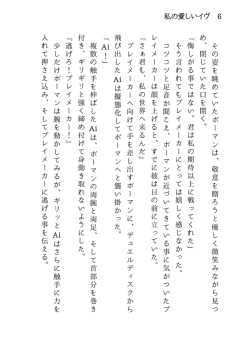 私の愛しいイヴ 6
その姿を眺めていたボーマンは、敬意を贈ろうと優しく微笑みながら見つ
め、閉じていた口を開く。
「悔しがる事ではない。君は私の期待以上に戦ってくれた」
そう言われてもプレイメーカーにとっては嬉しく感じなかった。
コツコツと足音が聞こえ、ボーマンが近づいてきている事に気がついたプ
レイメーカーは顔を上げると、すでに彼は目の前に立っていた。
「さぁ君も、私の世界へ来るんだ」
プレイメーカーへ向けて手を差し出すボーマンに、デュエルディスクから
飛び出したAiは擬態化してボーマンへと襲い掛かった。
「Ai！」
複数の触手を伸ばしたAiは、ボーマンの両腕と両足、そして首部分を巻き
付き、ギリギリと強く締め付けて身動き取れないようにした。
『逃げろ！プレイメーカー！』
少しだけボーマンは腕を動かしてみるが、ギリッとAiはさらに触手に力を
入れて押さえ込み、そしてプレイメーカーに逃げる事を伝える。